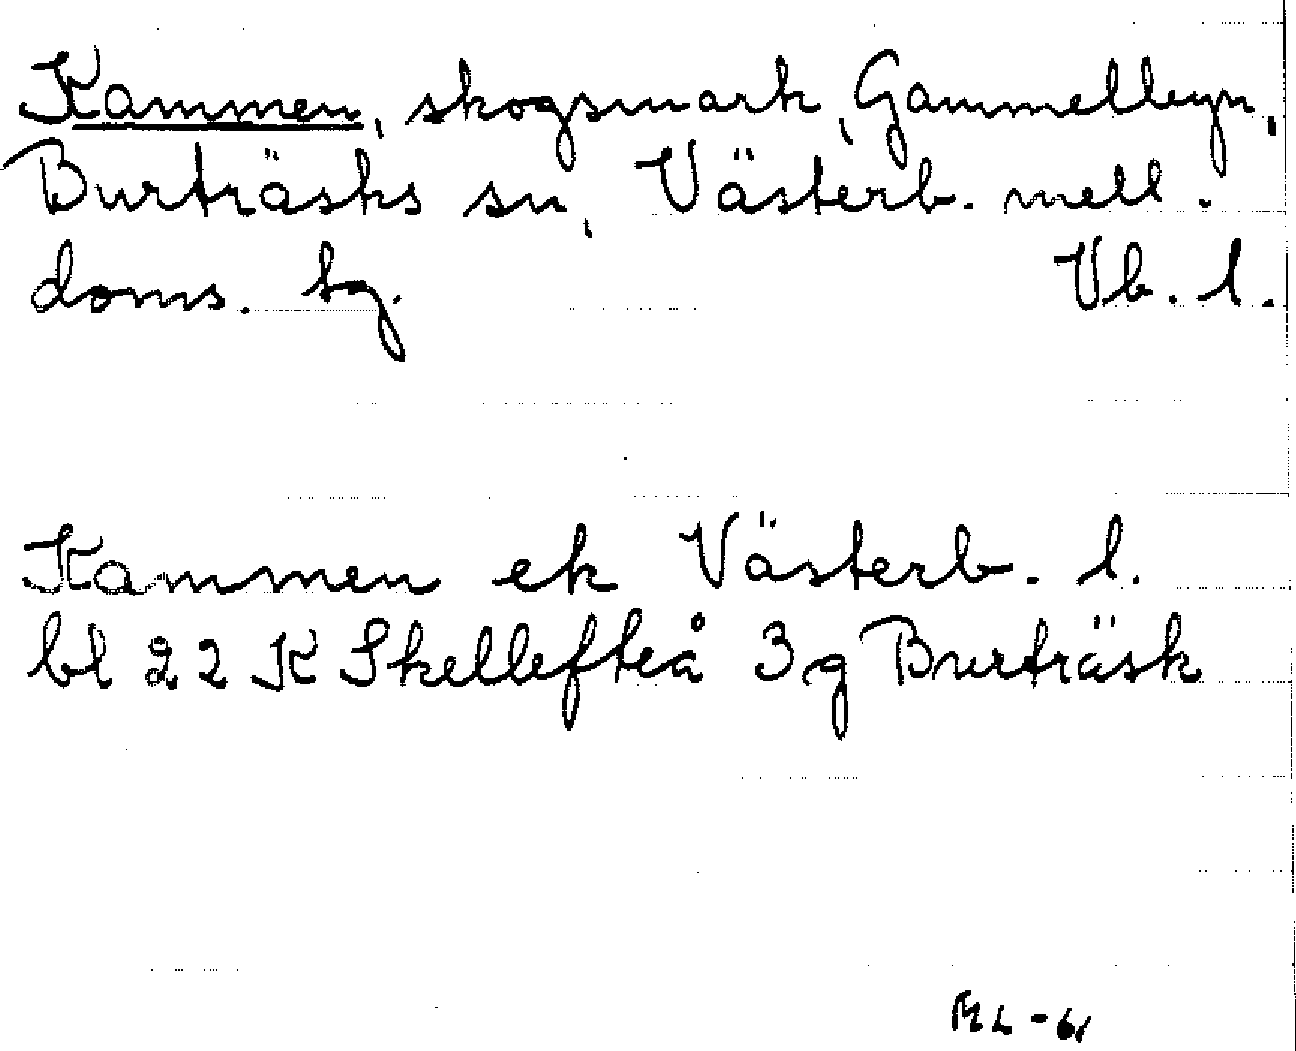 Kammen, skogsmark, Gammelbyn,
Burträsks sn, Västerb. mell.
doms. sg. Vb. l.
Kammen ek Västerb. l.
bl 22 K Skellefteå 3g Burträsk